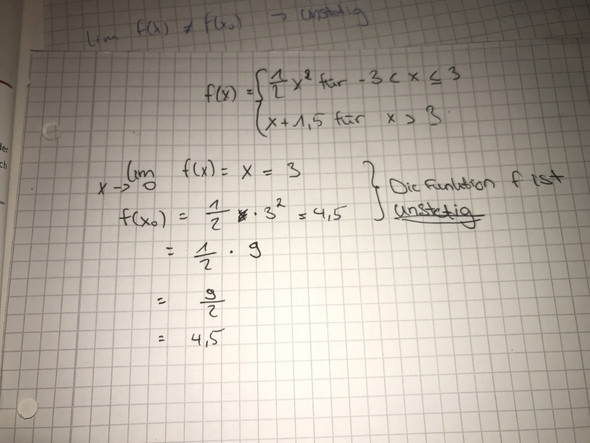 lim f(x) ≠ f(x₀) → unstetig
f(x) = { 1/2 x² für -3 < x ≤ 3
{ x + 1,5 für x > 3
lim x→0 f(x) = x = 3
f(x₀) = 1/2 · 3² = 4,5 } Die Funktion f ist unstetig
= 1/2 · 9
= 9/2
= 4,5